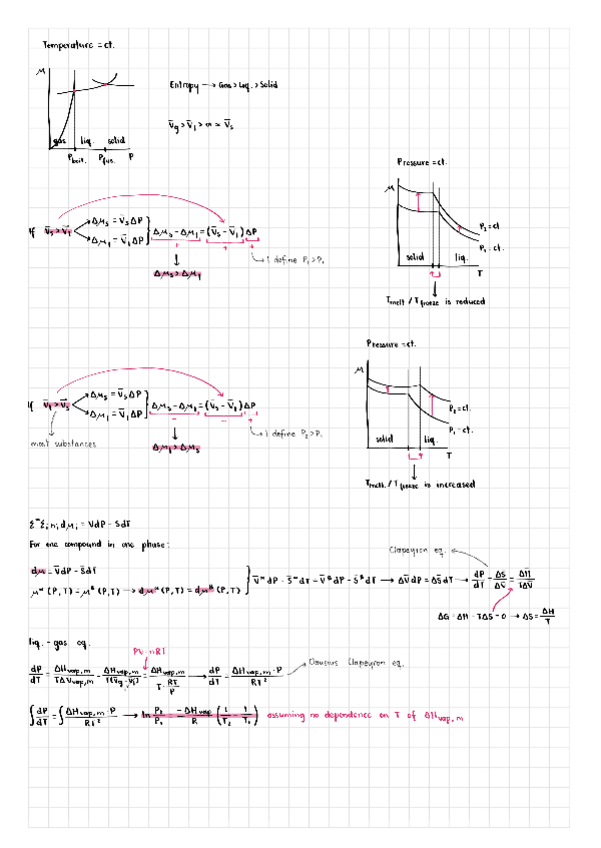 Temperature = ct.
μ
gas liq. solid
P boil. P fus. P
Entropy → Gas > Liq. > Solid
V̄g > V̄l > or ≃ V̄s
Pressure = ct.
μ
P₂ = ct
P₁ = ct.
solid liq.
T
T melt / T freeze is reduced
If V̄s > V̄l
Δμs = V̄s ΔP
Δμl = V̄l ΔP
Δμs - Δμl = (V̄s - V̄l) ΔP
+ + +
I define P₂ > P₁
Δμs > Δμl
Pressure = ct.
μ
P₂ = ct.
P₁ = ct.
solid liq.
T
T melt. / T freeze is increased
If V̄l > V̄s
Δμs = V̄s ΔP
Δμl = V̄l ΔP
Δμs - Δμl = (V̄s - V̄l) ΔP
- - +
I define P₂ > P₁
most substances
Δμl > Δμs
dμi = VdP - SdT
For one compound in one phase:
dμ = V̄dP - S̄dT
μᵅ (P,T) = μᵝ (P,T) → dμᵅ (P,T) = dμᵝ (P,T)
V̄ᵅdP - S̄ᵅdT = V̄ᵝdP - S̄ᵝdT → ΔV̄dP = ΔS̄dT → dP/dT = ΔS̄/ΔV̄ = ΔH̄/TΔV̄
Clapeyron eq.
ΔG = ΔH - TΔS = 0 → ΔS = ΔH/T
liq. - gas eq.
PV = nRT
dP/dT = ΔHvap,m / TΔVvap,m = ΔHvap,m / T(V̄g - V̄l) = ΔHvap,m / T · RT/P → dP/dT = ΔHvap,m · P / RT²
Clausius Clapeyron eq.
∫ dP/dT = ∫ ΔHvap,m · P / RT² → ln P₂/P₁ = -ΔHvap/R (1/T₂ - 1/T₁) assuming no dependence on T of ΔHvap,m